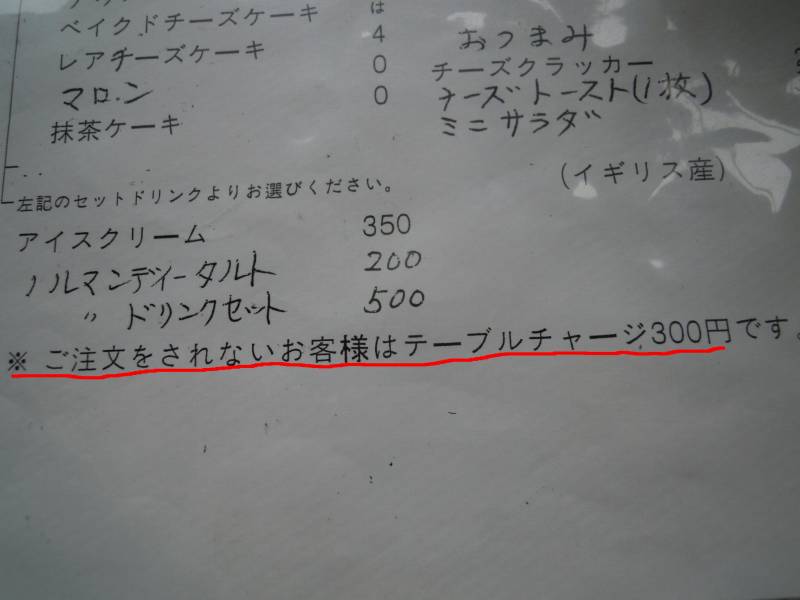 ベイクドチーズケーキ
レアチーズケーキ
マロン
抹茶ケーキ
は
4
0
0
おつまみ
チーズクラッカー
チーズトースト(1枚)
ミニサラダ
(イギリス産)
左記のセットドリンクよりお選びください。
アイスクリーム 350
ノルマンディータルト 200
〃 ドリンクセット 500
※ ご注文をされないお客様はテーブルチャージ300円です。